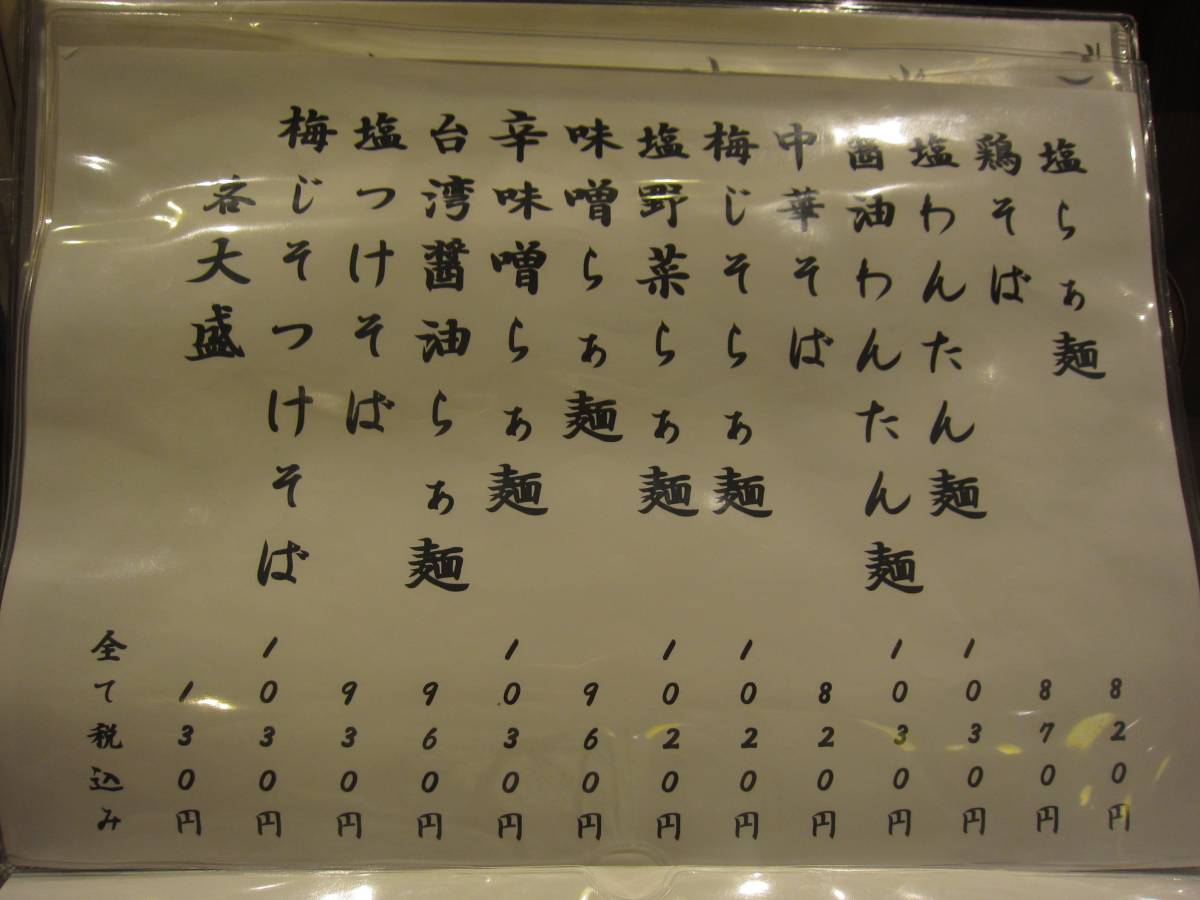 塩らぁ麺 820円
鶏そば 870円
塩わんたん麺 1030円
醤油わんたん麺 1030円
中華そば 820円
梅じそらぁ麺 1020円
塩野菜らぁ麺 1020円
味噌らぁ麺 960円
辛味噌らぁ麺 1030円
台湾醤油らぁ麺 960円
塩つけそば 930円
梅じそつけそば 1030円
各大盛 130円
全て税込み